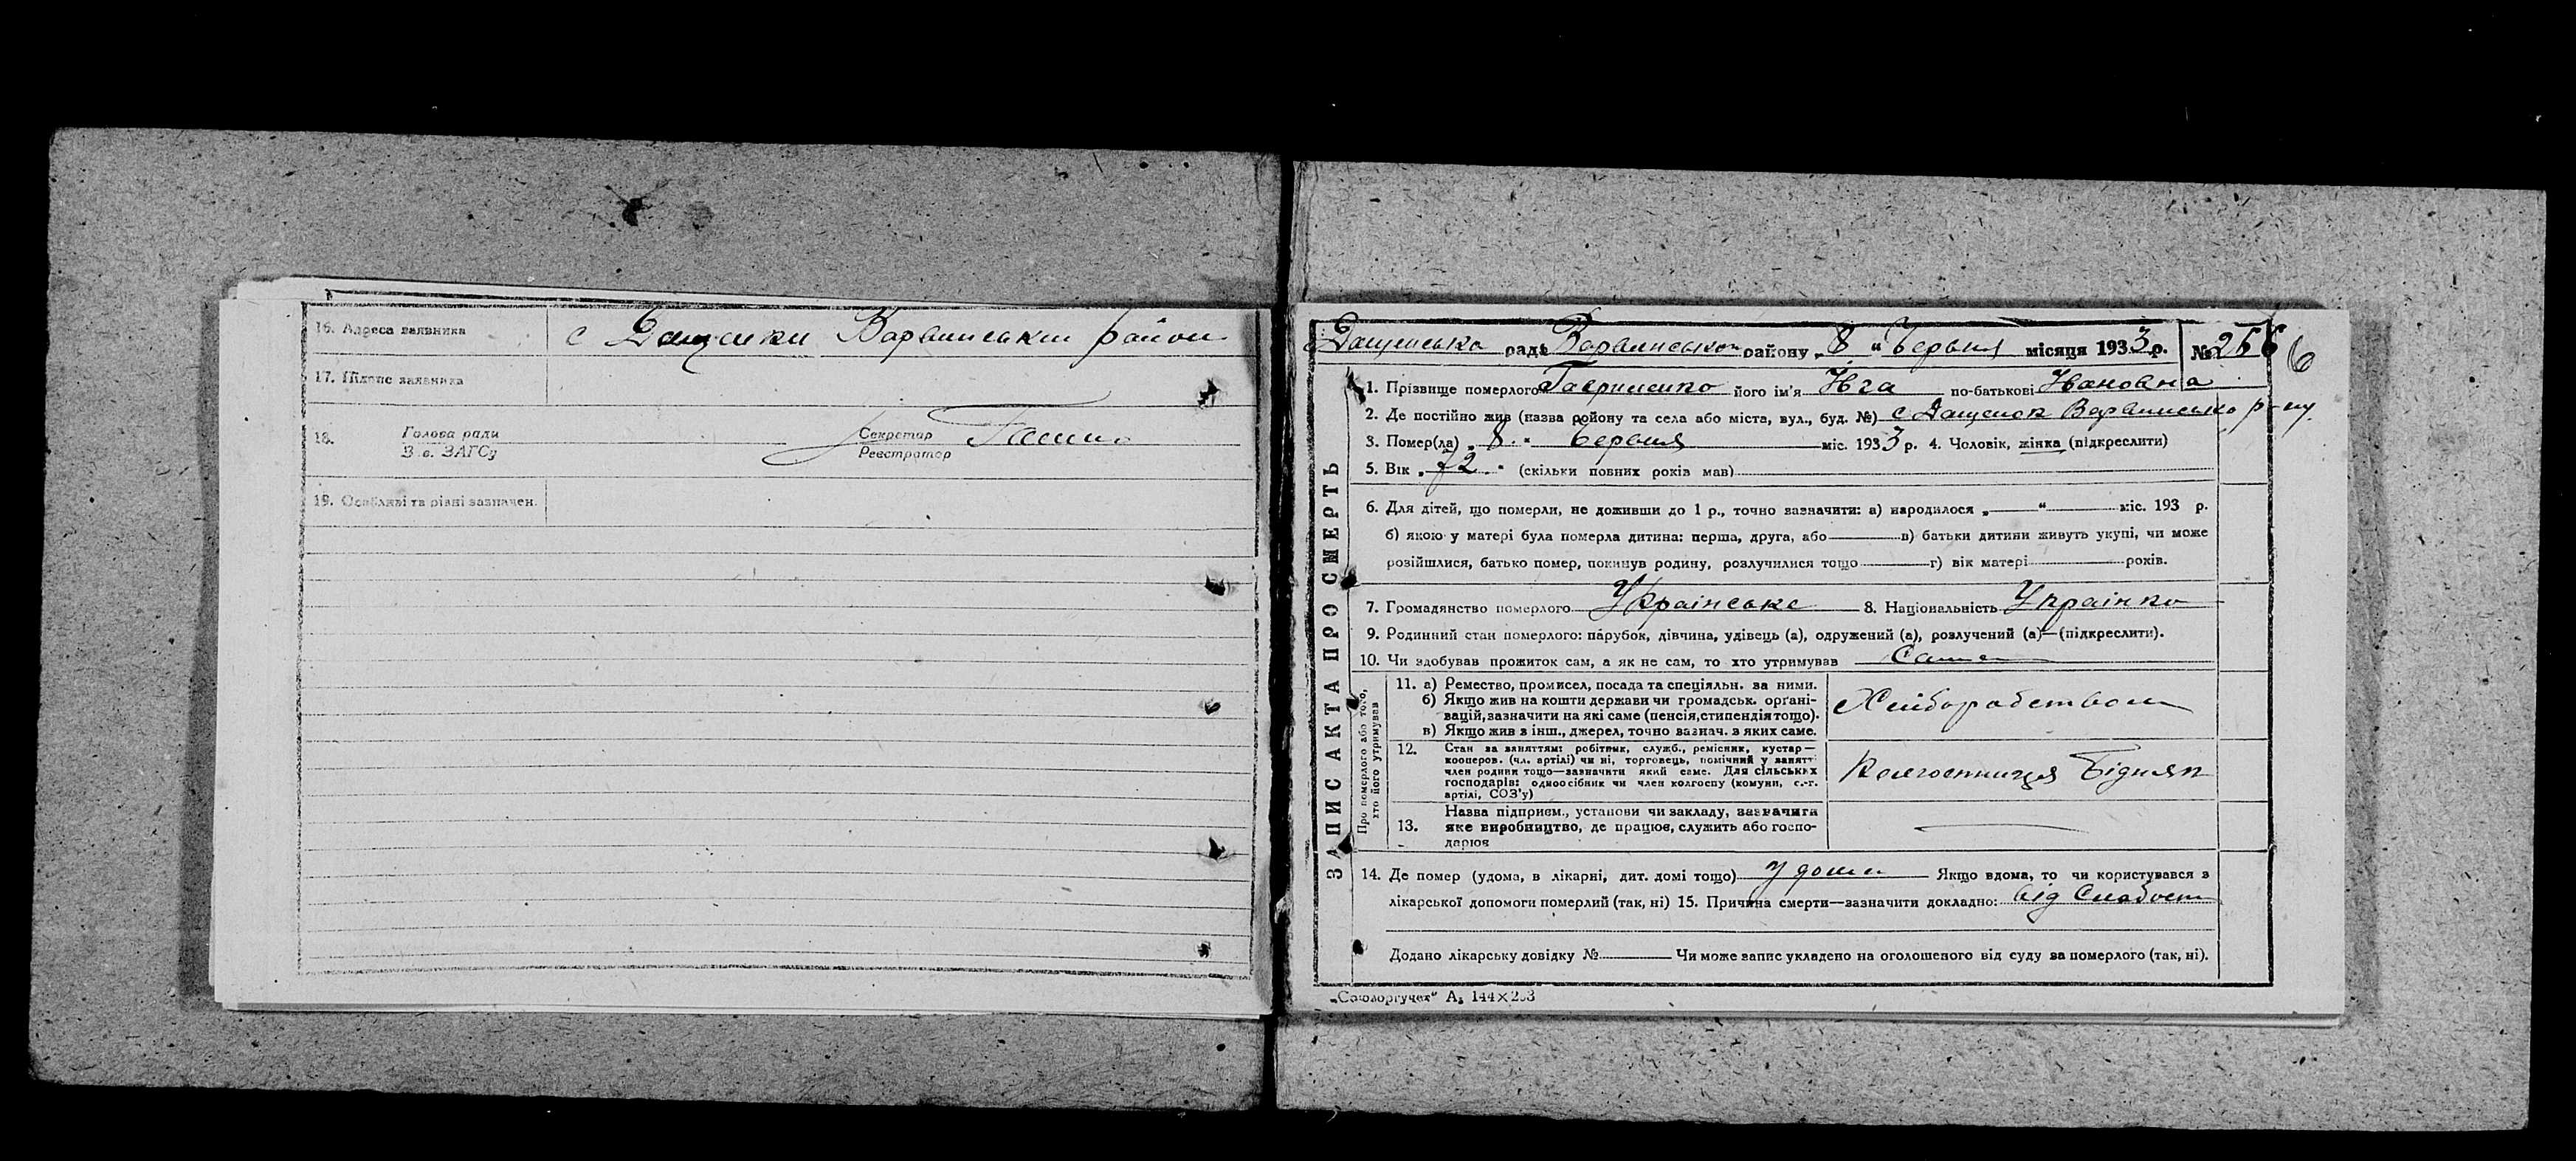 16. Адреса заявника с Дащенки Варвинський район
17. Підпис заявника
18. Голова ради Секретар
Зав. ЗАГСу Реєстратор
19. Особливі та різні зазначен.
Дащенська рада Варвинського району „8“ Червня місяця 1933 р. № 266 6
ЗАПИС АКТА ПРО СМЕРТЬ
1. Прізвище померлого Гавриленко його ім'я по-батькові Ивановна
2. Де постійно жив (назва району та села або міста, вул., буд. №) с Дащенок Варвинсько р-ну
3. Помер(ла) „8“ Червня міс. 1933 р. 4. Чоловік, жінка (підкреслити)
5. Вік „72“ (скільки повних років мав)
6. Для дітей, що померли, не доживши до 1 р., точно зазначити: а) народилося „ “ міс. 193 р.
б) якою у матері була померла дитина: перша, друга, або в) батьки дитини живуть укупі, чи може
розійшлися, батько помер, покинув родину, розлучилися тощо г) вік матері років.
7. Громадянство померлого Українське 8. Національність Українка
9. Родинний стан померлого: парубок, дівчина, удівець (а), одружений (а), розлучений (а)—(підкреслити).
10. Чи здобував прожиток сам, а як не сам, то хто утримував Сама
Про померлого або того,
хто його утримував
11. а) Ремество, промисел, посада та спеціяльн. за ними.
б) Якщо жив на кошти держави чи громадськ. органі-
зацій, зазначити на які саме (пенсія, стипендія тощо).
в) Якщо жив з інш., джерел, точно зазнач. з яких саме.
Хліборобством
12. Стан за заняттям: робітник, служб., ремісник, кустар—
кооперов. (чл. артілі) чи ні, торговець, помічний у занятт
член родини тощо—зазначити який саме. Для сільських
господарів: одноосібник чи член колгоспу (комуни, с.-г.
артілі, СОЗ'у)
Колгоспниця Бідняк
13. Назва підприєм., установи чи закладу, зазначити
яке виробництво, де працює, служить або госпо-
дарює
14. Де помер (удома, в лікарні, дит. домі тощо) у дома Якщо вдома, то чи користувався з
лікарської допомоги померлий (так, ні) 15. Причина смерти—зазначити докладно: від Слабости
Додано лікарську довідку № Чи може запис укладено на оголошеного від суду за померлого (так, ні).
„Союзоргучет“ А₅ 144×203